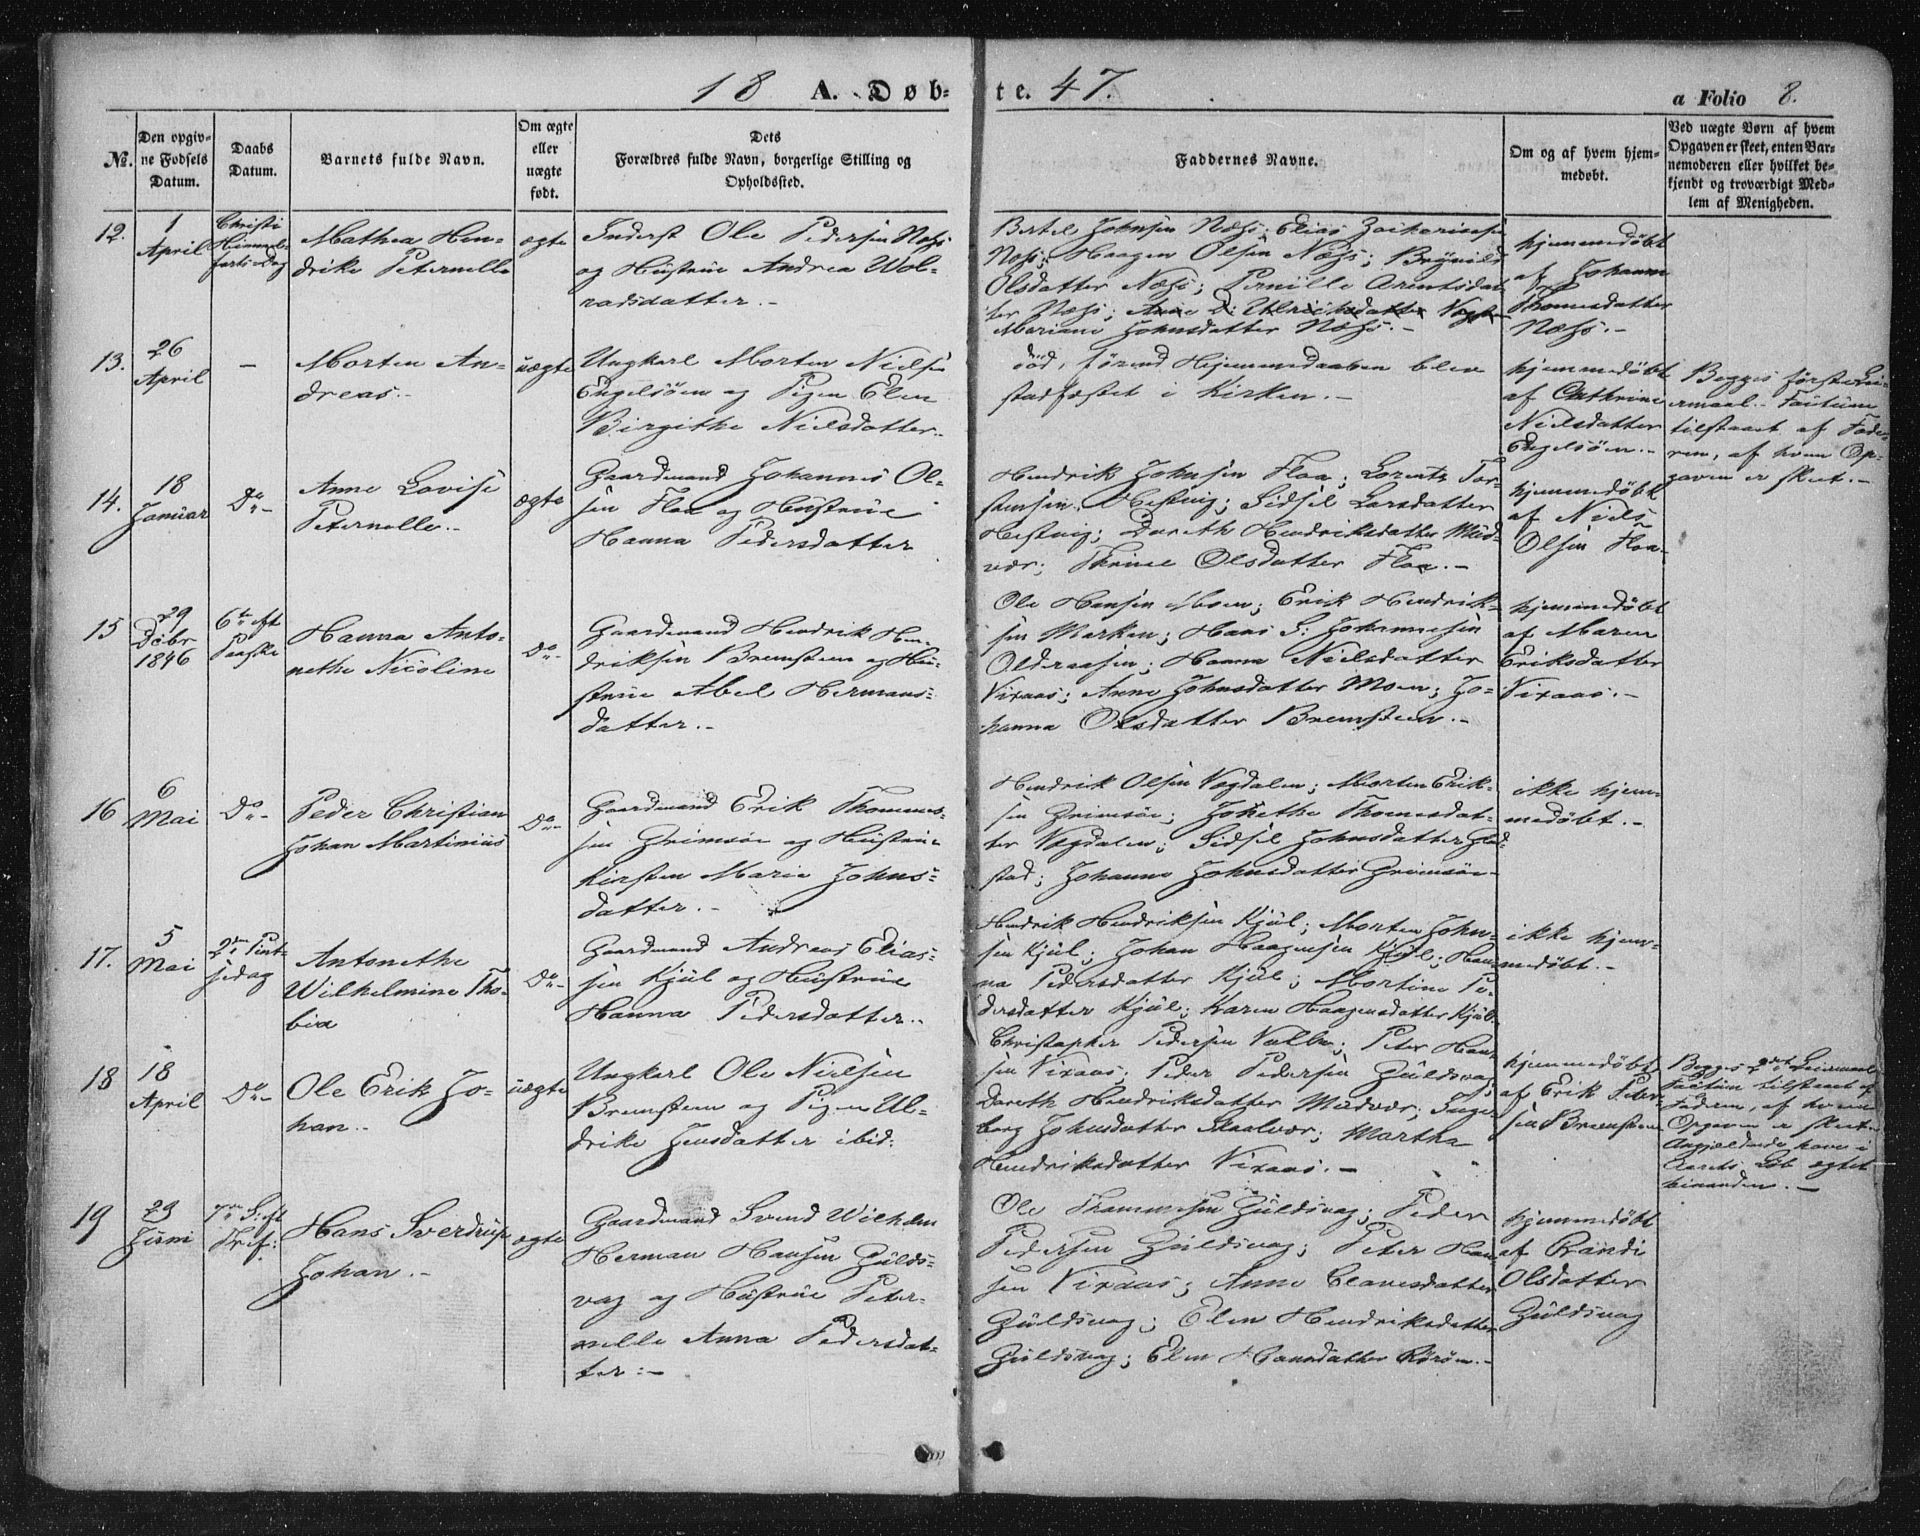 18 A. Døb-
te. 47.
a Folio 8.
No.
Den opgiv-
ne Fødsels
Datum.
Daabs
Datum.
Barnets fulde Navn.
Om ægte
eller
uægte
født.
Dets
Forældres fulde Navn, borgerlige Stilling og
Opholdssted.
Faddernes Navne.
Om og af hvem hjem-
medøbt.
Ved uægte Børn af hvem
Opgaven er skeet, enten Bar-
nemoderen eller hvilket be-
kjendt og troværdigt Med-
lem af Menigheden.
12.
1
April
Christi
Himmel-
farts-Dag
Mathea Hen-
drike Peternelle
ægte
Inderst Ole Pedersen Næss
og Hüstrüe Andrea Wol-
radsdatter.-
Bertel Johnsen Næss; Elias Zachariasen
Næss; Haagen Olsen Næss; Brynild
Olsdatter Næss; Pernille Arentsdat-
ter Næss;
Mariane Johnsdatter Næss.-
hjemmedøbt
af Johanna
Thomesdatter
Næss.-
13.
26
April
-
Morten An-
dreas.-
üægte
Ungkarl Morten Nielsen
Engelsöen og Pigen Elen
Birgithe Nielsdatter.
död, förend Hjemmedaaben blev
stadfæstet i Kirken.-
hjemmedøbt
af Cathrine
Nielsdatter
Engelsöen.-
Begges første Lei-
ermaal.- Factum
tilstaaet af Fade-
ren, af hvem Op-
gaven er skeet.-
14.
18
Janüar
Do-
Anne Lovise
Peternelle.-
ægte
Gaardmand Johannes Ol-
sen Floa og Hüstrüe
Hanna Pedersdatter
Hendrik Johnsen Floa; Lorents Tor-
stensen Hestvig; Sidsel Larsdatter
Hestvig; Dareth Hendriksdatter Müd-
vær; Thrine Olsdatter Floa.-
hjemmedøbt
af Niels
Olsen Floa-
15
29
Dcbr
1846
6te eft
Paaske
Hanna Anto-
nethe Nicoline
Do-
Gaardmand Hendrik Hen-
driksen Bremsteen og Hü-
strüe Abel Hermans-
datter.-
Ole Hansen Moen; Erik Hendrik-
sen Marken; Hans S: Johannesen
Olderaasen; Hanna Nielsdatter
Vixaas; Anne Johnsdatter Moen; Jo-
hanna Olsdatter Bremsteen.-
hjemmedøbt
af Maren
Eriksdatter
Vixaas.-
16
6
Mai
Do-
Peder Christian
Johan Martinius
Do-
Gaardmand Erik Thommes-
sen Grimsöe og Hüstrüe
Kirsten Marie Johns-
datter.-
Hendrik Olsen Vægdalen; Morten Erik-
sen Grimsöe; Johethe Thomesdat-
ter Vægdalen; Sidsel Johnsdatter
stad; Johanna Johnsdatter Grimsöe-
ikke hjem-
medøbt.-
17.
5
Mai
2den Pint-
sedag
Antonethe
Wilhelmine Tho-
bia
Do-
Gaardmand Andreas Elias-
sen Kjül og Hüstrüe
Hanna Pedersdatter.-
Hendrik Hendriksen Kjül; Morten John-
sen Kjül; Johan Haagensen Kjül; Han-
na Pedersdatter Kjül; Martine Pe-
dersdatter Kjül; Karen Haagensdatter Kjül
ikke hjem-
medøbt.-
18
18
April
Do-
Ole Erik Jo-
han.-
üægte
Ungkarl Ole Nielsen
Bremsteen og Pigen Ul-
drike Jensdatter ibid:
Christopher Pedersen Valla; Peter Han-
sen Vixaas; Peder Pedersen Güldsvag;
Dareth Hendriksdatter Müdvær; Inge-
borg Johnsdatter Skaalvær; Martha
Hendriksdatter Vixaas.-
hjemmedøbt
af Erik Peter-
sen Bremsteen
Begges 2det Leiermaal
Factum tilstaaet af
Faderen, af hvem
Opgaven er skeet.
Angjældende have i
Aarets Løb ægtet
hinanden.-
19
29
Jüni
7de S: eft
Tref:
Hans Sverdrup
Johan.-
ægte
Gaardmand Svend Wilhelm
Herman Hansen Gülds-
vag og Hüstrüe Peter-
nelle Anna Pedersdat-
ter.-
Ole Thommesen Güldsvag; Peder
Pedersen Güldsvag; Peter Han-
sen Vixaas; Anne Clavesdatter
Güldsvag; Elen Hendriksdatter
Güldsvag; Elen Hansdatter Rörøen.-
hjemmedøbt
af Randi
Olsdatter
Güldsvag